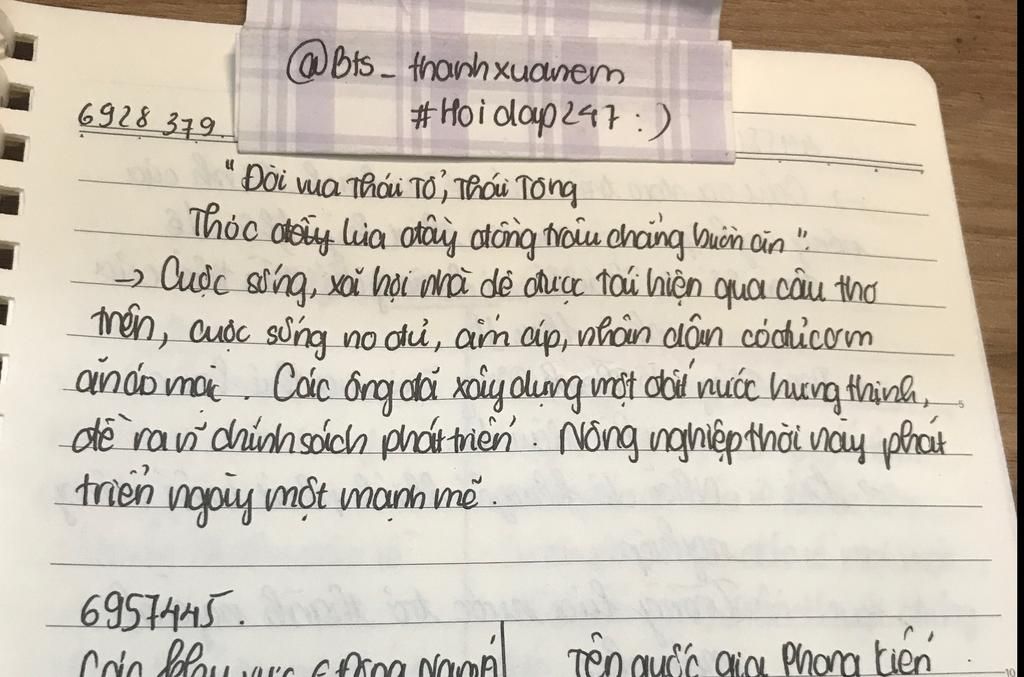 @Bts_thanhxuanem
#Hoidap247 :)
6928 379.
"Đời vua Thái Tổ, Thái Tông
Thóc lúa đầy đồng trâu chẳng buồn ăn".
→ Cuộc sống, xã hội nhà Lê được tái hiện qua câu thơ
trên, cuộc sống no đủ, ấm áp, nhân dân có đủ cơm
ăn áo mặc. Các ông đã xây dựng một đất nước hưng thịnh,
đề ra n' chính sách phát triển. Nông nghiệp thời này phát
triển ngày một mạnh mẽ.
6957445.
Các khu vực Đông Nam Á
Tên quốc gia phong kiến